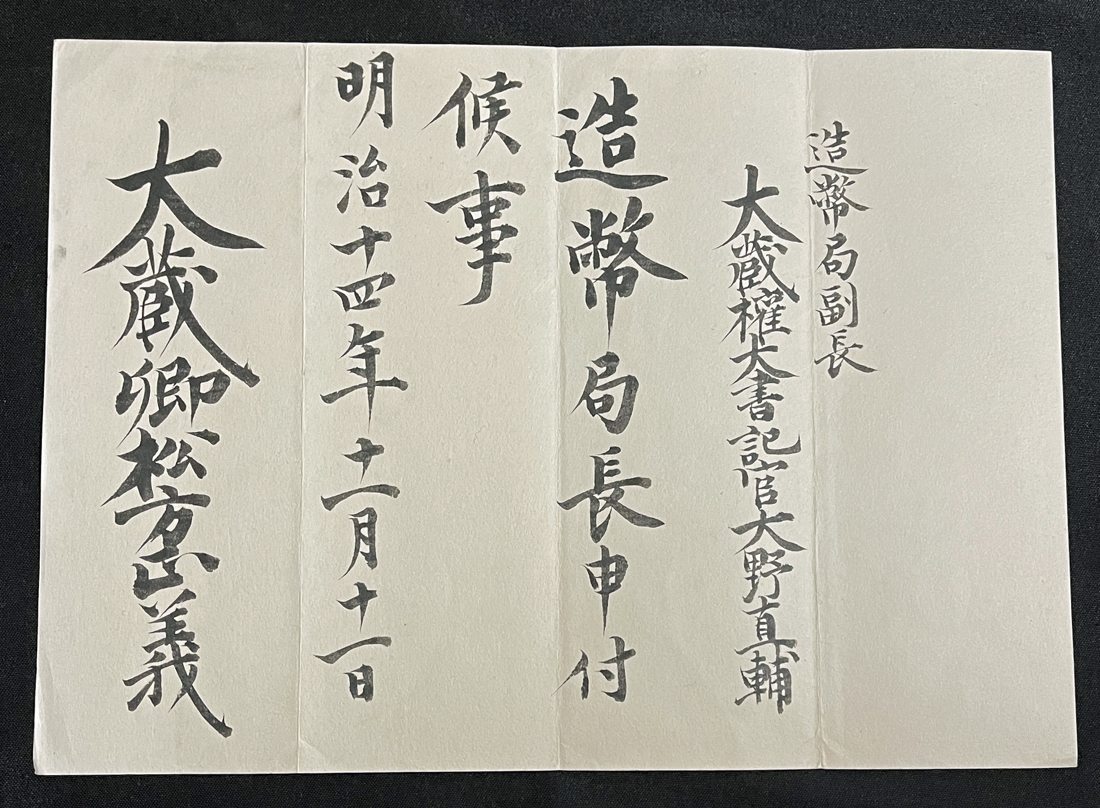 造幣局副長
大蔵権大書記官大野直輔
造幣局長申付
候事
明治十四年十一月十一日
大蔵卿松方正義